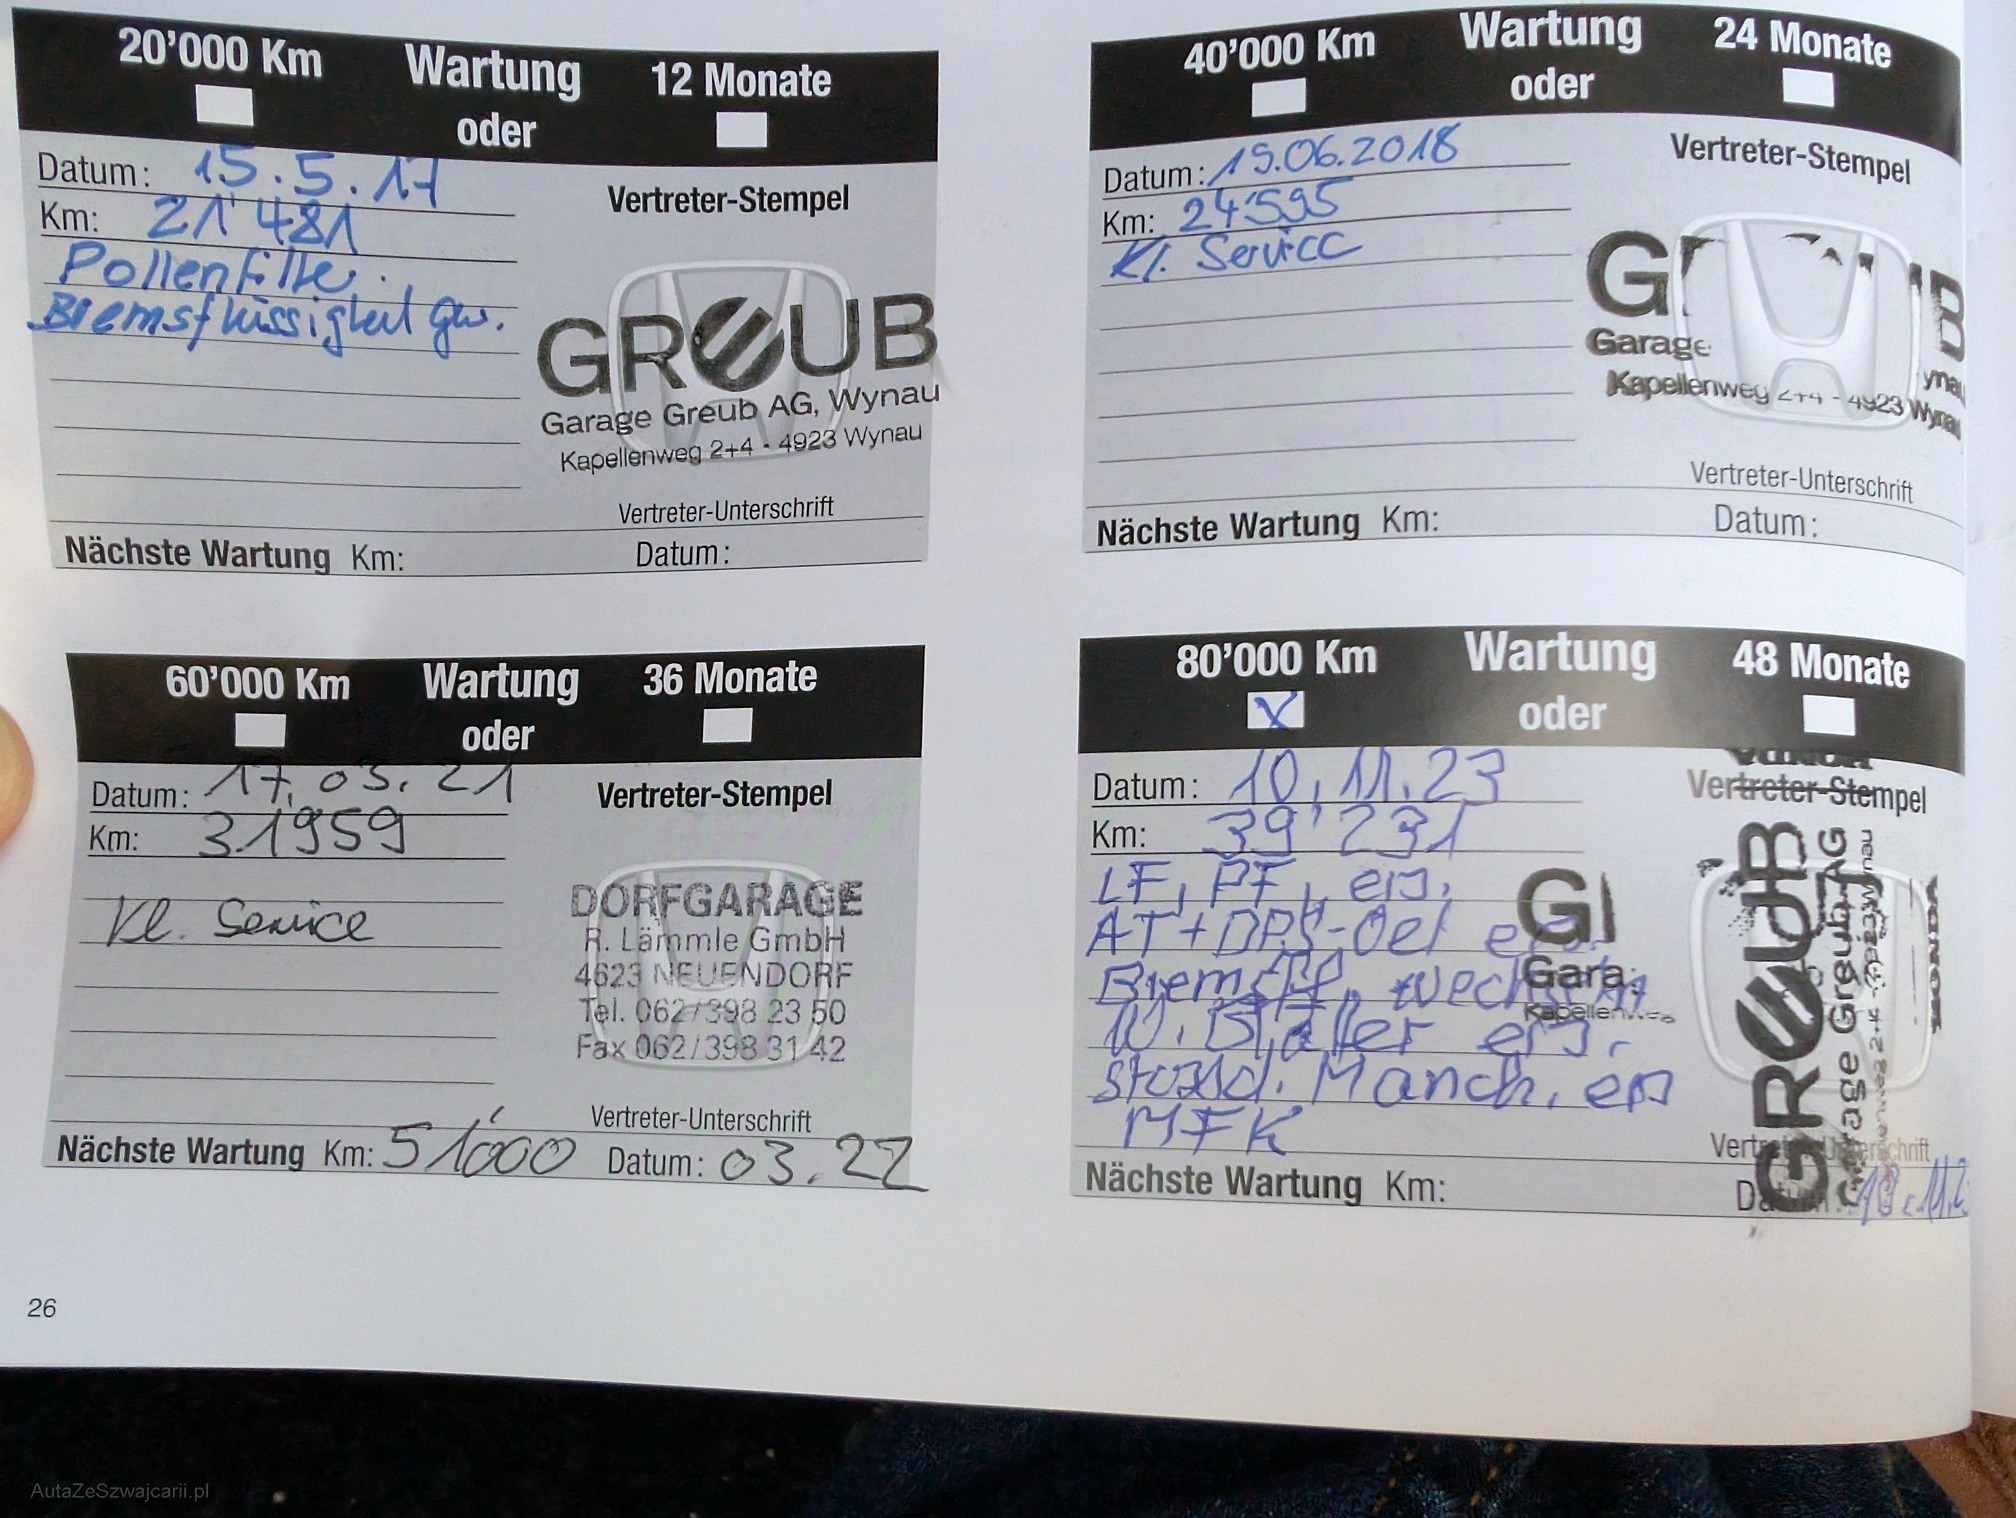 20'000 Km Wartung oder 12 Monate
Datum: 15.5.17
Km: 21'481
Vertreter-Stempel
Pollenfilter
Bremsflüssigkeit gw.
GREUB
Garage Greub AG, Wynau
Kapellenweg 2+4 - 4923 Wynau
Vertreter-Unterschrift
Nächste Wartung Km: Datum:
40'000 Km Wartung oder 24 Monate
Datum: 19.06.2018
Km: 24'595
Kl. Service
Vertreter-Stempel
G B
Garage
ynau
Kapellenweg 2+4 - 4923 Wynau
Vertreter-Unterschrift
Nächste Wartung Km: Datum:
60'000 Km Wartung oder 36 Monate
Datum: 17.03.21
Km: 31959
Vertreter-Stempel
Kl. Service
DORFGARAGE
R. Lämmle GmbH
4623 NEUENDORF
Tel. 062/398 23 50
Fax 062/398 31 42
Vertreter-Unterschrift
Nächste Wartung Km: 51'000 Datum: 03.22
80'000 Km X Wartung oder 48 Monate
Datum: 10.11.23
Km: 39'231
Vertreter-Stempel
LF, PF, ers.
AT+DPS-Oel
Bremsfl. wechseln
W. Blätter ers.
Stossd. Manch. ers
MFK
Gara
Kapellenweg
GREUB
Garage Greub AG
HONDA
Vertreter-Unterschrift
Nächste Wartung Km: Datum:
26
AutaZeSzwajcarii.pl